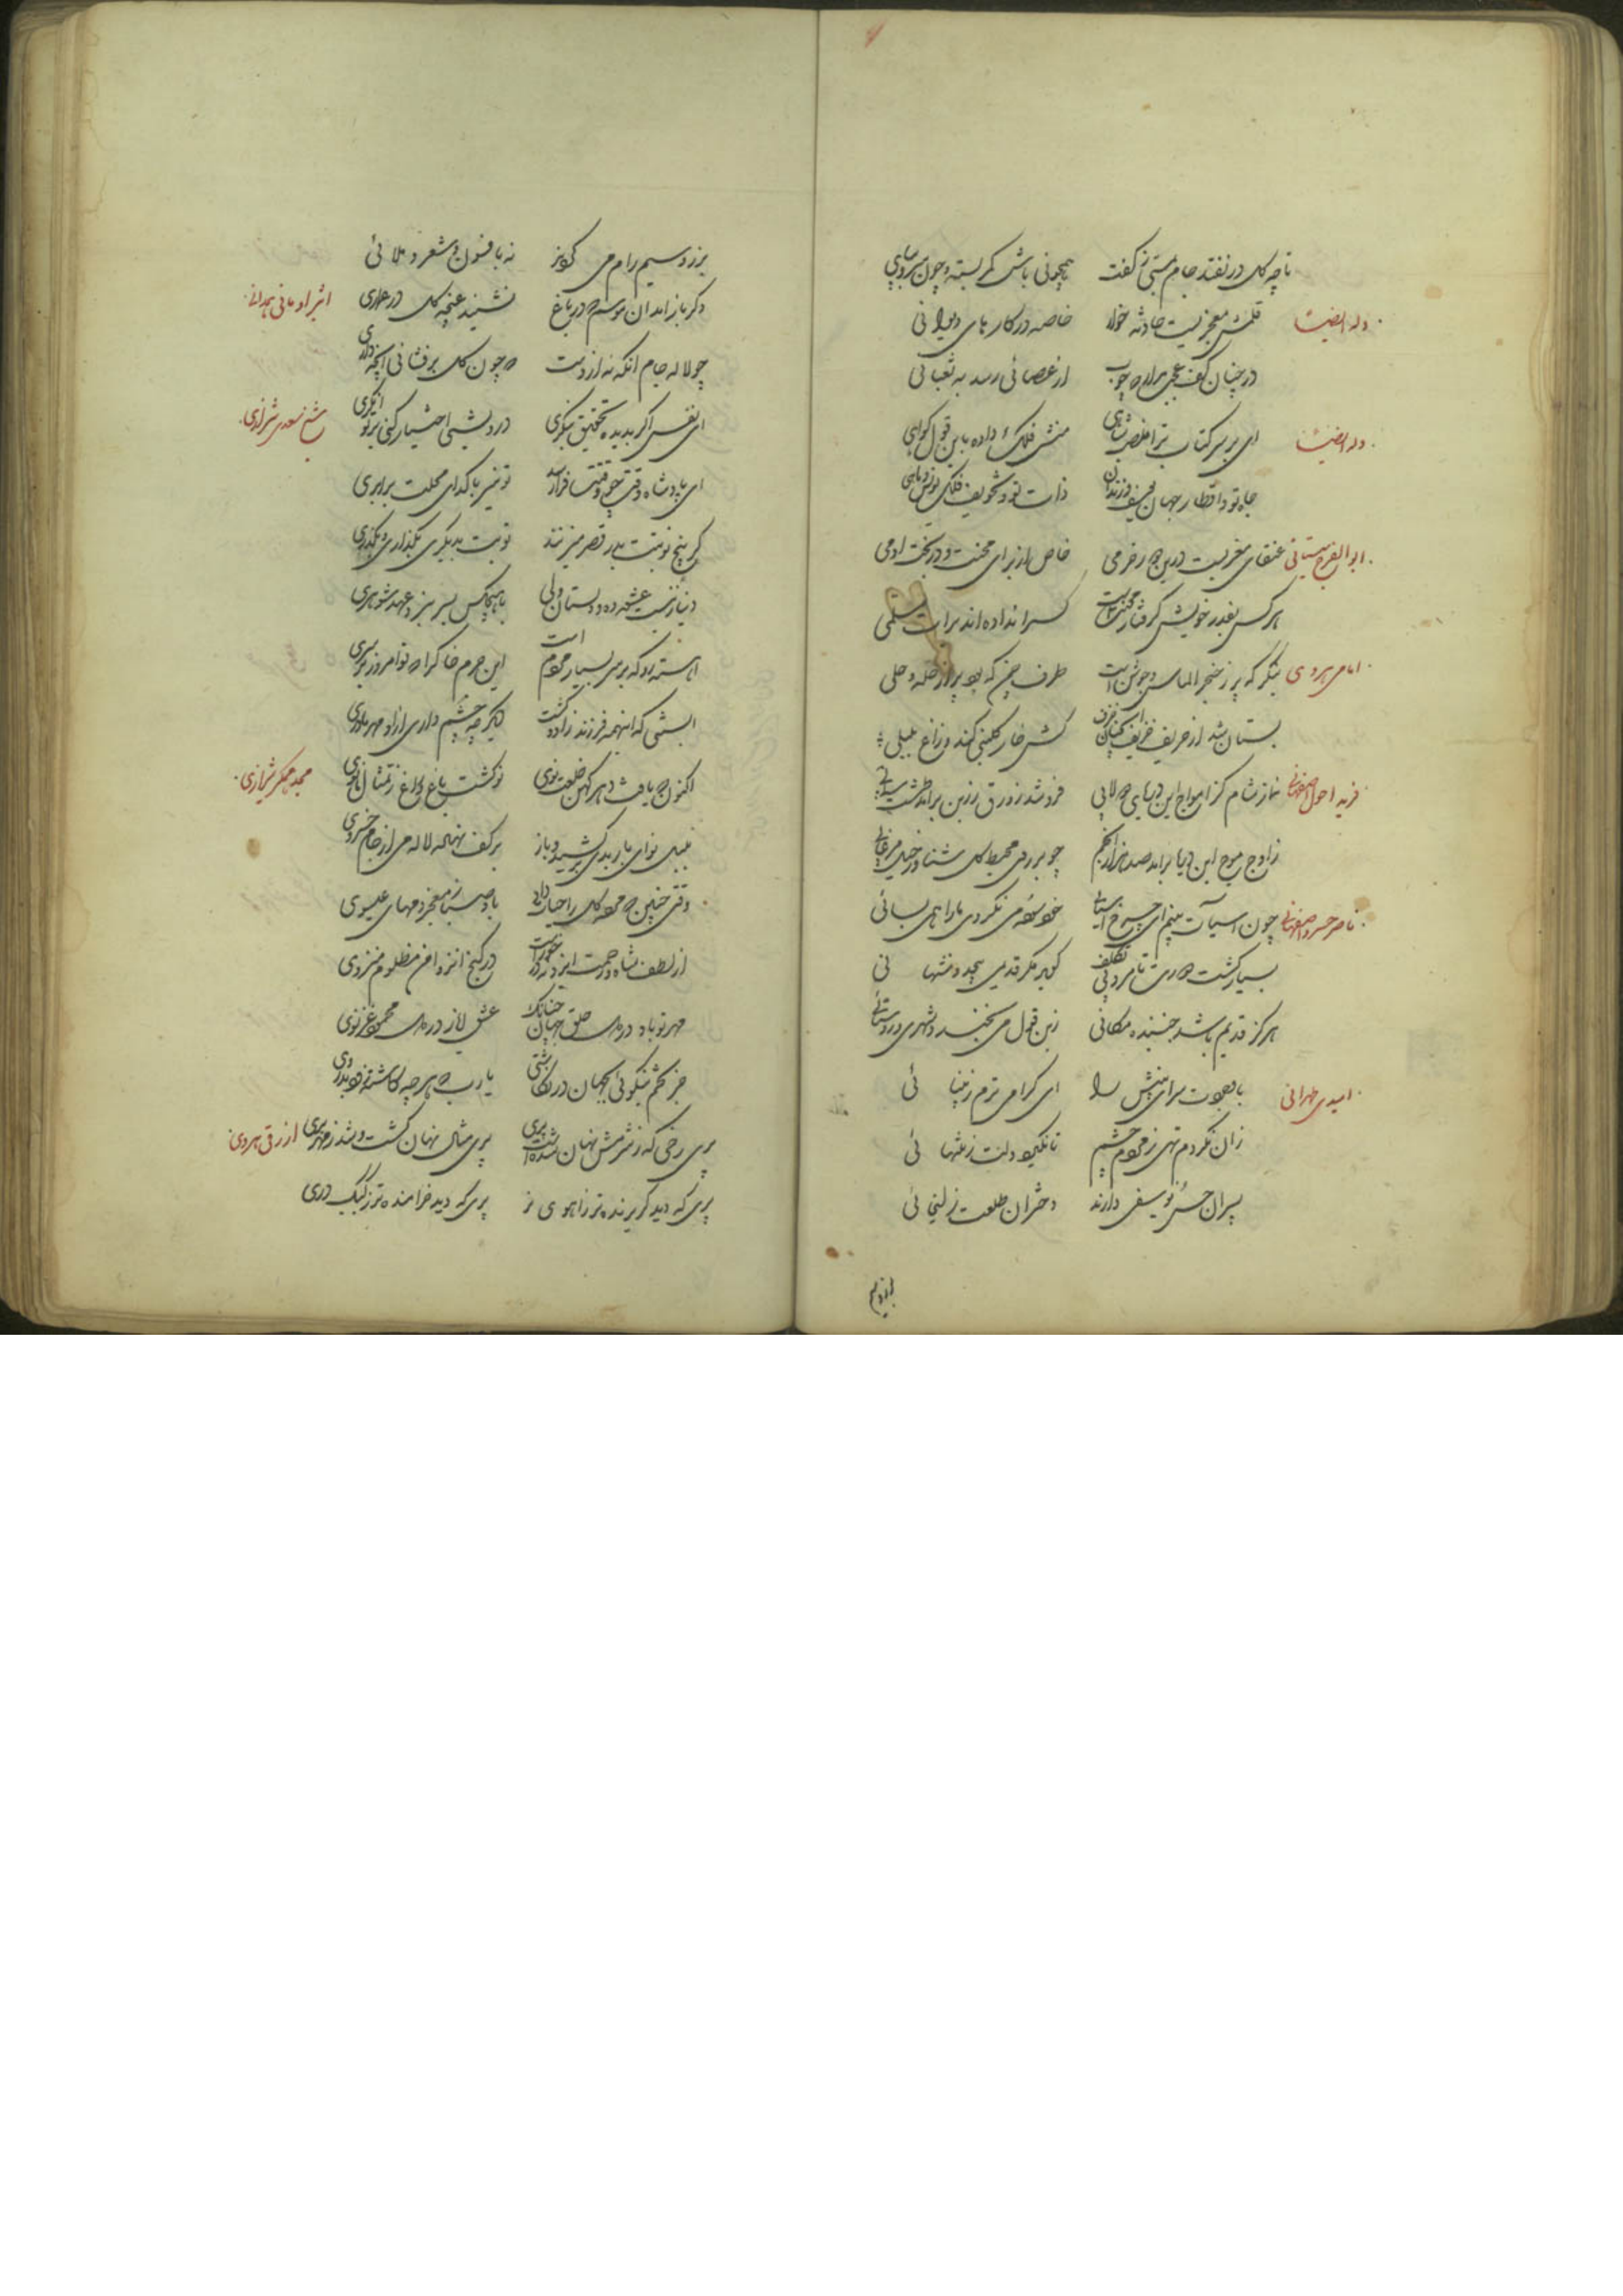 تا چه گل در نفتد جام مستی ز کفت همچونی باش کمر بسته و چون سرو بپای
وله ایضا قلمش معجزیست حادثه خوار خاصه در کارهای دیوانی
در چنان کف عجب مدار که چوب از عصائی رسد به ثعبانی
وله ایضا ای بر سر کتاب ترا منصب شاهی منشی فلک داده باین قول گواهی
جاه تو و اقطار جهان یوسف و زندان ذات تو و تجویف فلک یونس و ماهی
ابوالفرج سیستانی عنقای مغربست درین دور خرمی خاص از برای محنت و درد است آدمی
هر کس بقدر خویش گرفتار محنتست کس را نداده اند برات مسلمی
امامی هروی بنگر که پر ز خنجر الماس و جوشنست طرف چمن که بود پر از حله و حلی
بستان شد از خریف خریف کنون گلبنی کند و زاغ بلبلی
فرید احول اصفهانی نماز شام کز امواج این دریای دولابی فرو شد زورق زرین برآمد طشت سیمابی
ز اوج موج این دریا برآمد صد هزار انجم چو بر روی محیط گل شناور خیل مرغابی
ناصر خسرو اصفهانی چون آسیات بینم ای چرخ آسیائی خود سوده می نگردی ما را همی بسائی
بسیار گشت دورت تا مرد بی تکلف گوید مگر قدیمی بیحد و منتهائی
هرگز قدیم باشد جنبنده مکانی زین قول می بخندد شهری و روستائی
امیدی طهرانی با وجودت سرای بینش را ای گرامی ترم ز بینائی
زان نکردم تهی ز مردم چشم تا نگیرد دلت ز تنهائی
پسران حسن یوسفی دارند دختران طلعت زلیخائی
بزر و سیم رام می گردند نه بافسون و شعر و ملائی
اثیر اومانی همدانی دگر باز آمد آن موسم که در باغ نشیند غنچه گل در عماری
چو لاله جام انگه نه از دست که چون گل برفشانی آنچه داری
شیخ سعدی شیرازی ای نفس اگر بدیده تحقیق بنگری درویشی اختیار کنی بر توانگری
ای پادشاه وقت چو وقتت فرا رسد تو نیز با گدای محلت برابری
گر پنج نوبتت بدر قصر میزنند نوبت بدیگری بگذاری و بگذری
دنیا زنیست عشوه ده و دلستان ولی با هیچکس بسر نبرد عهد شوهری
آهسته رو که بر سر بسیار مردم است این جرم خاک را که تو امروز بر سری
آبستنی که اینهمه فرزند زاد و کشت دیگر چه چشم داری ازو مهر مادری
مجد همگر شیرازی اکنون که یافت دهر کهن خلعت نوی نو گشت باغ و راغ ز تمثال مانوی
بلبل نوای باربدی برکشید و باز بر کف نهاد لاله می از جام خسروی
وقتی چنین که مرده گل را حیات داد باد صبا ز معجز دمهای عیسوی
از لطف شاه و رحمت ایزد نه در خورست در کنج انزوا من مظلوم منزوی
مهر تو باد در دل خلق جهان چنانک عشق ایاز در دل محمود غزنوی
جز تخم نیکوئی بجهان در نکاشتی یا رب که هر چه کاشته بدروی
ازرقی هروی پری رخی که ز شرمش نهان شده است پری پری مثال نهان گشت و شد ز مهر بری
پری که دید گریزنده تر ز آهوی نر پری که دید خرامنده تر ز کبک دری